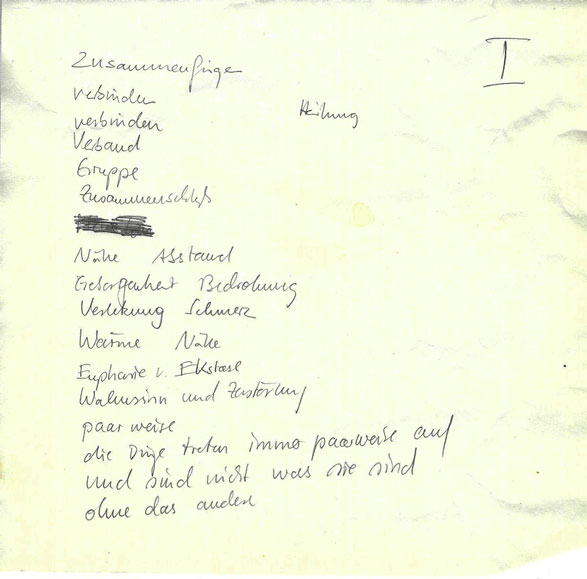 I
Zusammenfüge
verbinden
Heilung
verbinden
Verband
Gruppe
Zusammenschluß
Nähe Abstand
Geborgenheit Bedrohung
Verletzung Schmerz
Wärme Nähe
Euphorie u. Ekstase
Wahnsinn und Zerstörung
paarweise
die Dinge treten immer paarweise auf
und sind nicht was sie sind
ohne das andere